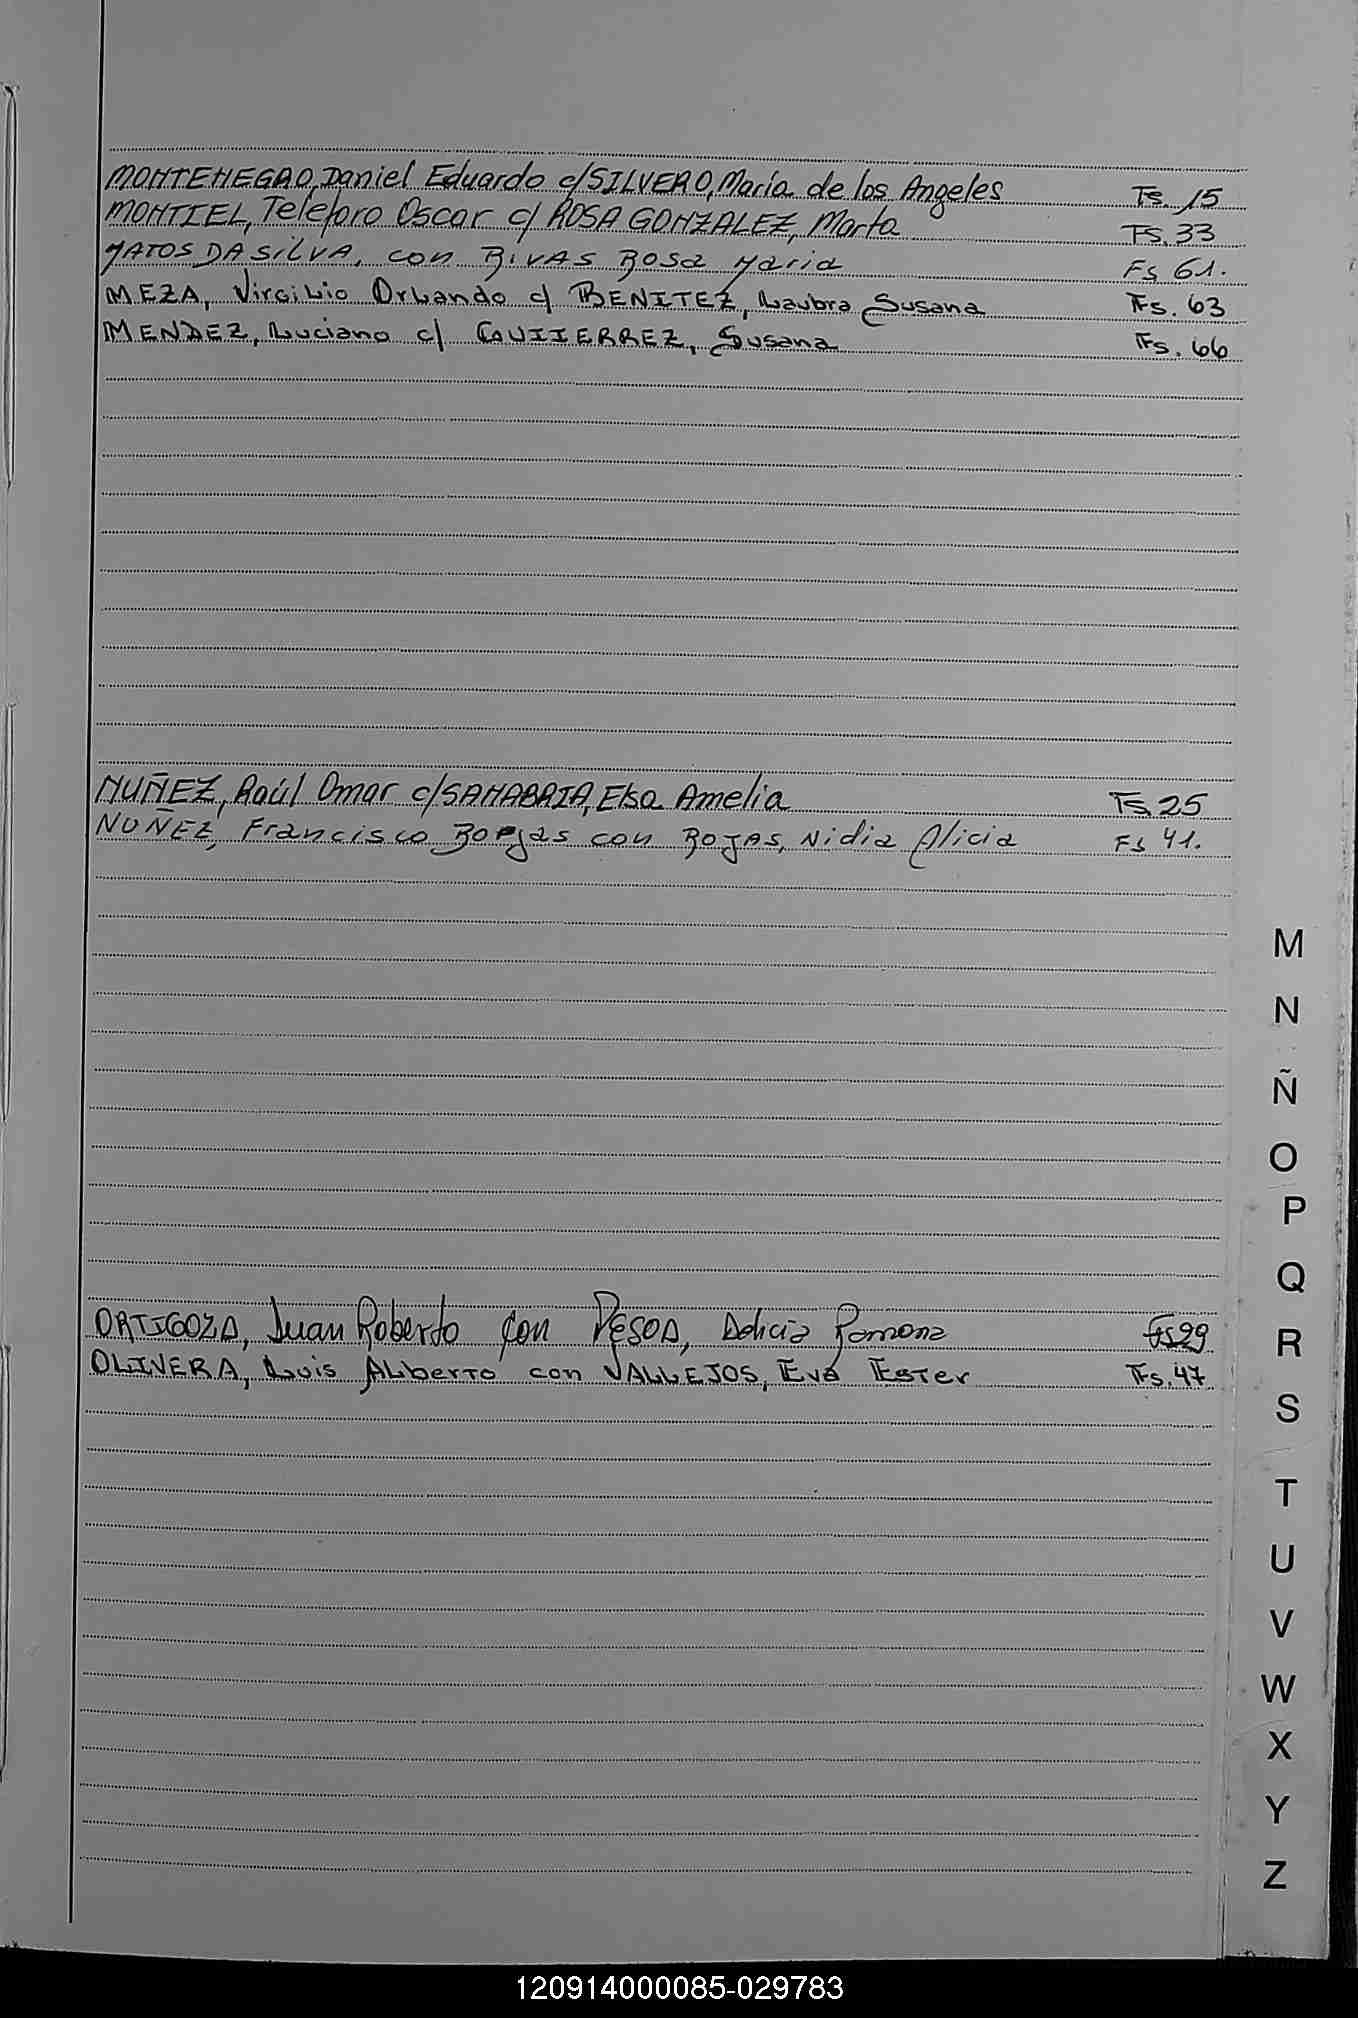 MONTENEGRO, Daniel Eduardo c/ SILVERO, María de los Angeles Fs. 15
MONTIEL, Teleforo Oscar c/ ROSA GONZALEZ, Marta Fs. 33
MATOS DA SILVA, con RIVAS ROSA Maria Fs 61.
MEZA, Virgilio Orlando c/ BENITEZ, Susana Fs. 63
MENDEZ, Luciano c/ GUTIERREZ, Susana Fs. 66
NUÑEZ, Raúl Omar c/ SANABRIA, Elsa Amelia Fs 25
NUÑEZ, Francisco Borjas con ROJAS, Nidia Alicia Fs 41.
M
N
Ñ
O
P
Q
ORTIGOZA, Juan Roberto con Ramona Fs 29
R
OLIVERA, Luis Alberto con VALLEJOS, Eva Ester Fs. 47
S
T
U
V
W
X
Y
Z
120914000085-029783